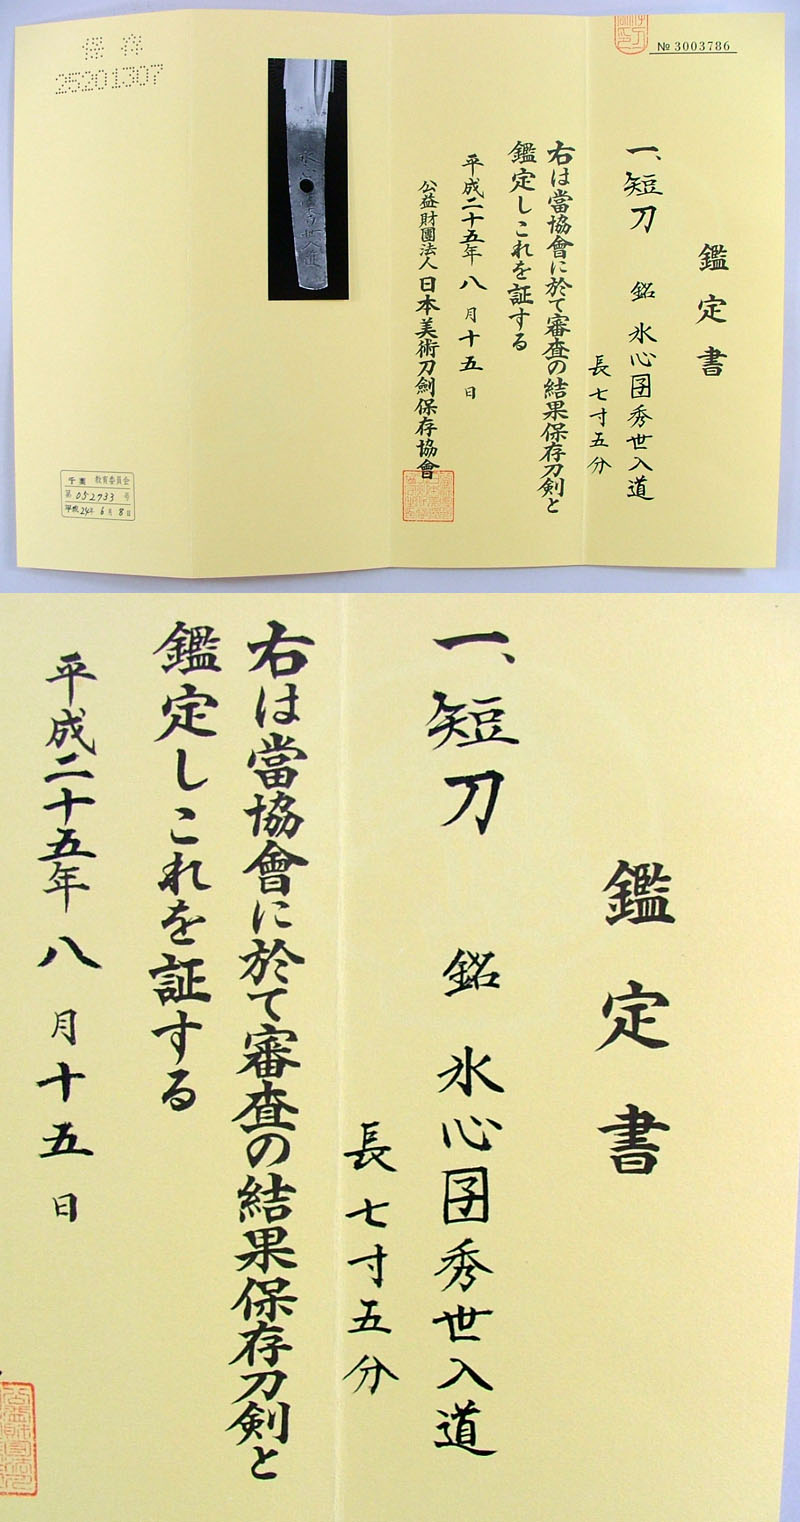 № 3003786
鑑定書
一、短刀 銘 氷心囝秀世入道
長七寸五分
右は當協會に於て審査の結果保存刀剣と
鑑定しこれを証する
平成二十五年八月十五日
公益財團法人日本美術刀劍保存協會
保存
25201307
千葉 教育委員会
第052733号
平成24年6月8日
鑑定書
一、短刀 銘 氷心囝秀世入道
長七寸五分
右は當協會に於て審査の結果保存刀剣と
鑑定しこれを証する
平成二十五年八月十五日